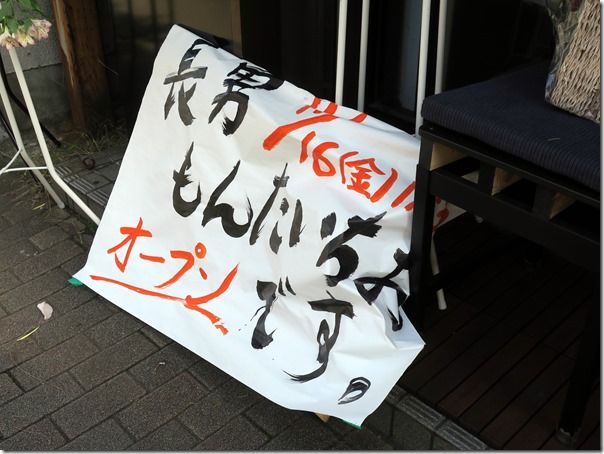 長男
/16(金)
もんたいちょ
です。
オープン